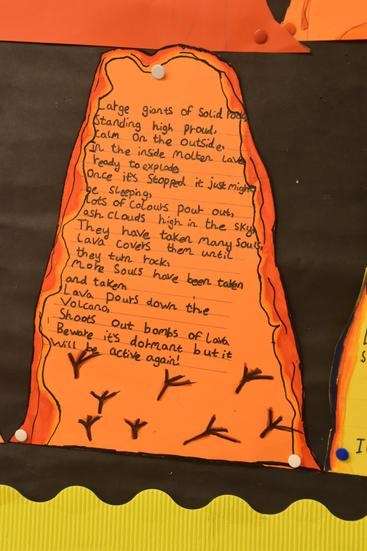 Large giants of Solid rock
Standing high proud,
Calm On the Outside,
In the inside Molten Lava
ready to explode
Once it's Stopped it just might
be sleeping,
lots of Colours pout out,
ash clouds high in the sky
They have taken many Souls,
Lava covers them until
they turn rock,
More Souls have been taken
and taken
Lava pours down the
Volcano,
Shoots Out bombs of Lava
Beware it's dormant but it
will be active again!